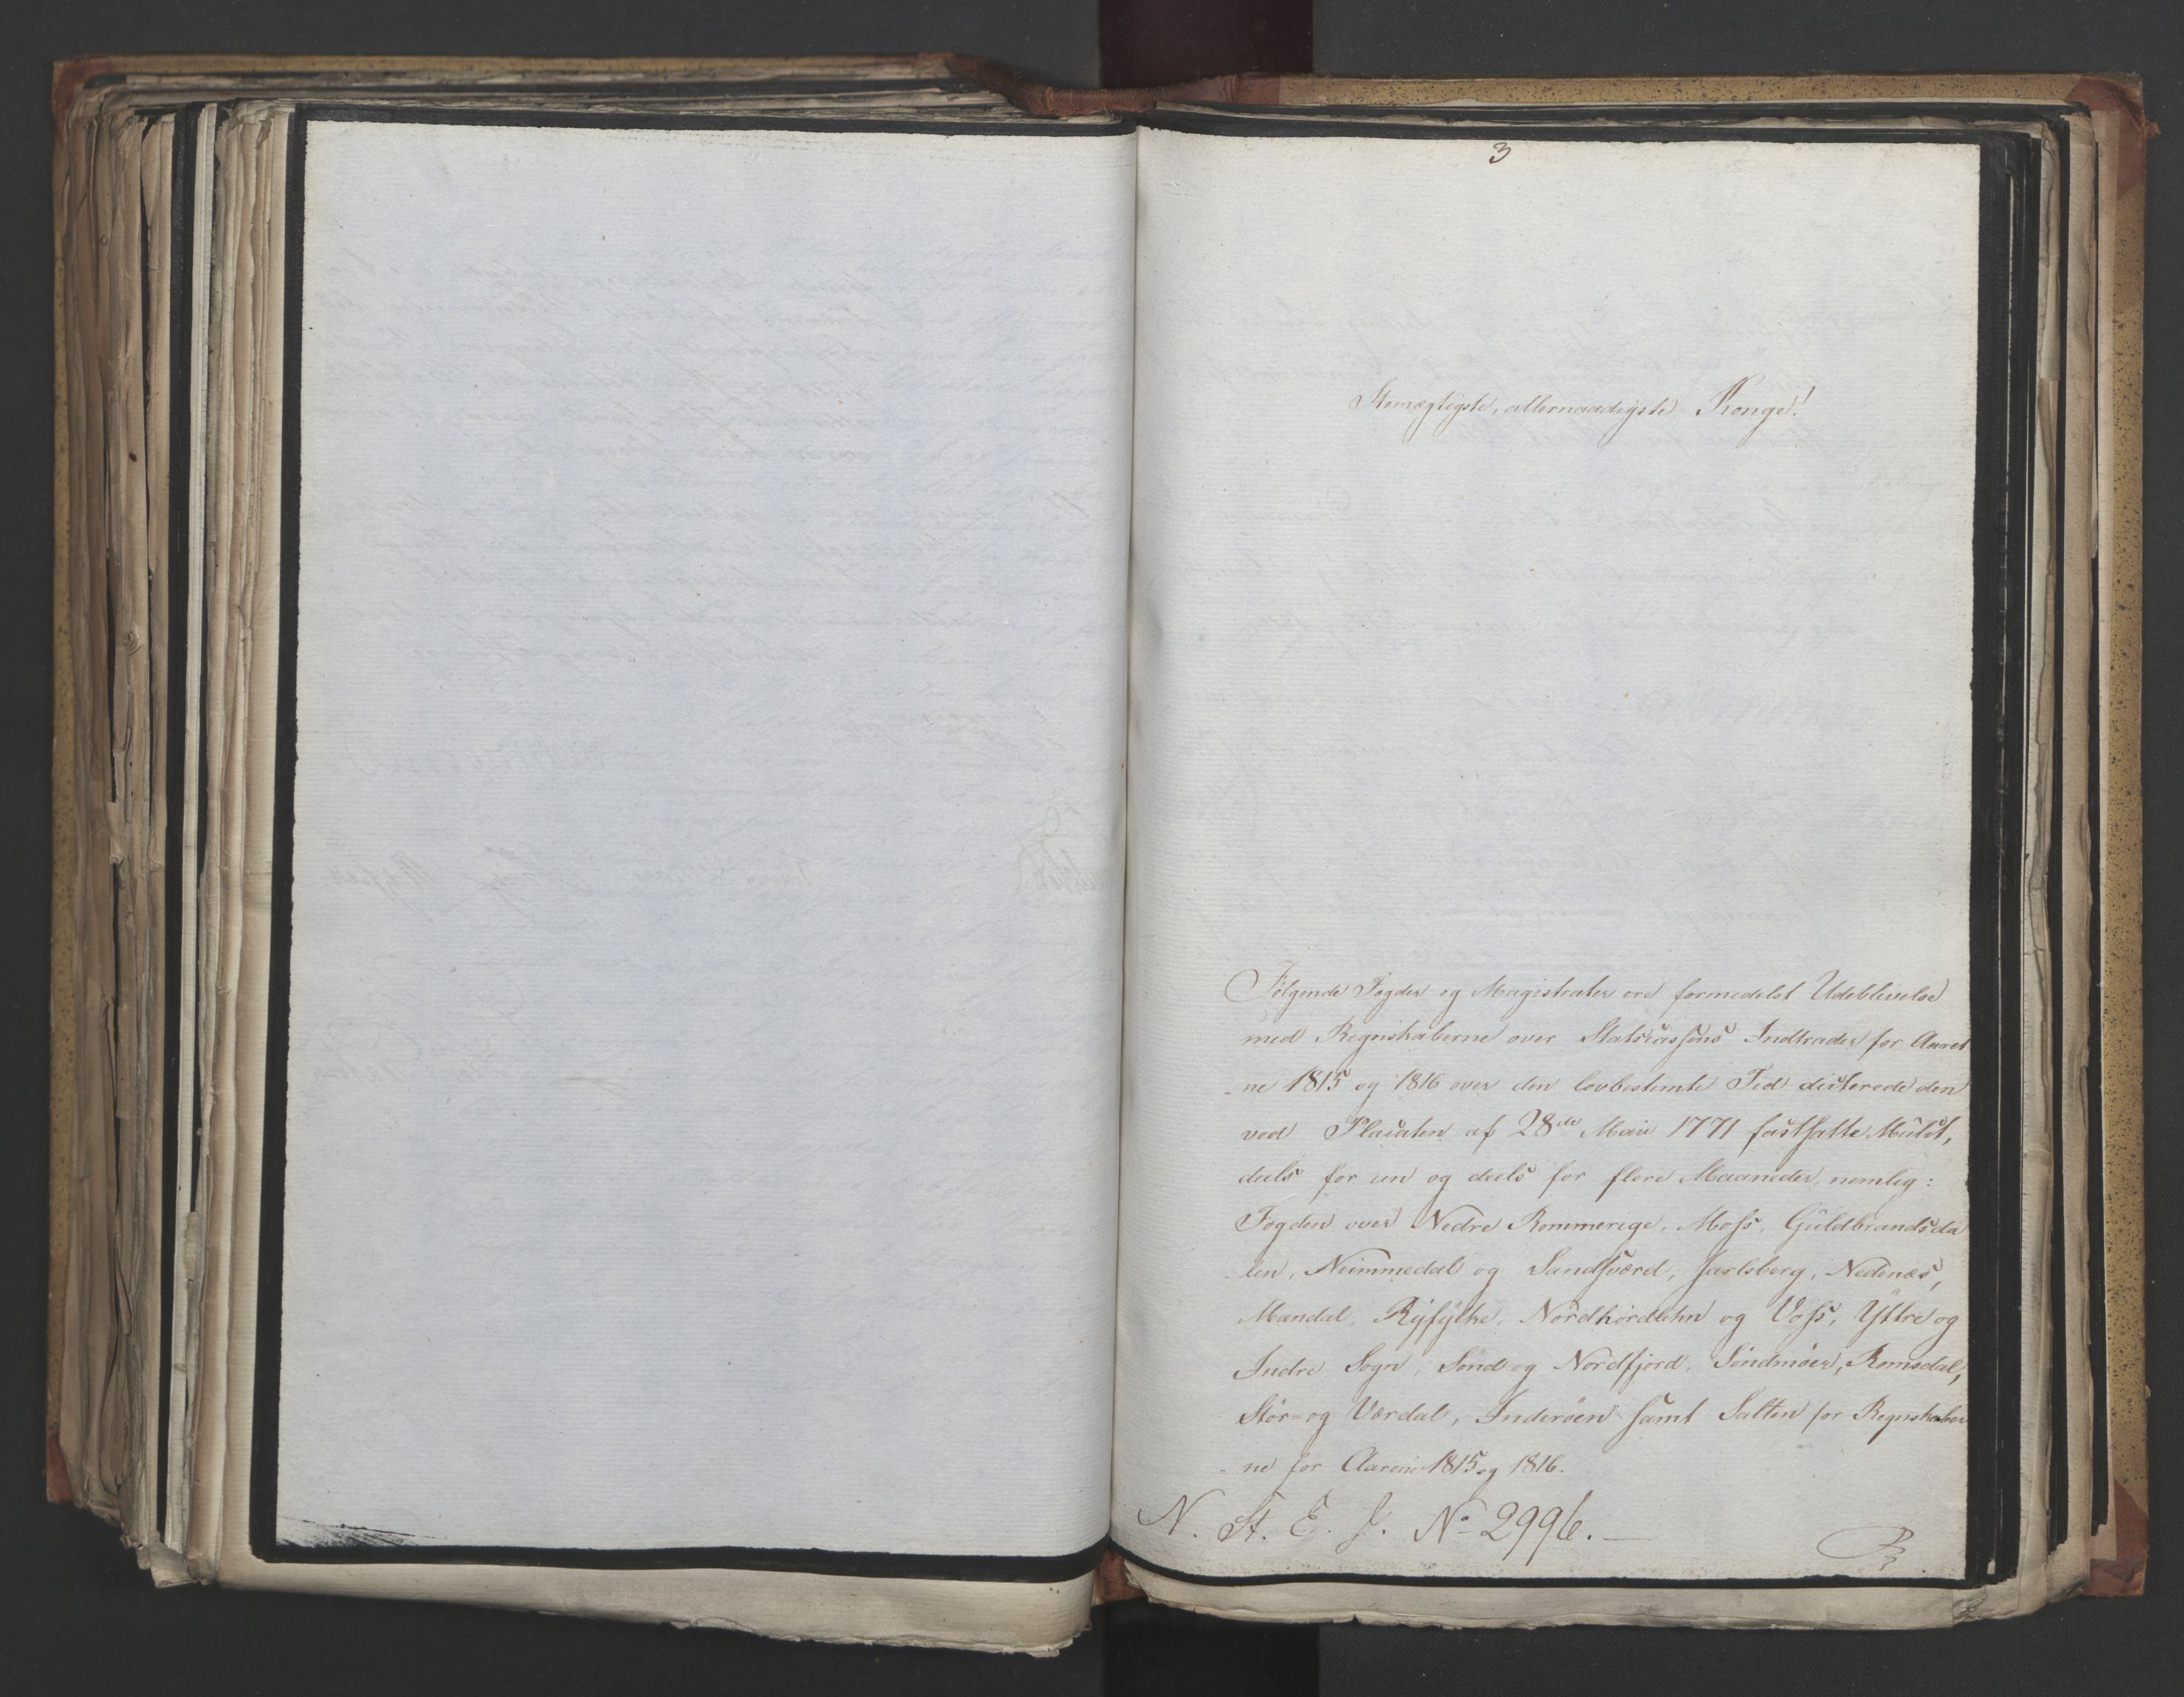 3
Stormægtigste, allernaadigste Konge!
Følgende Fogder og Magistrater ere formedelst Udeblivelse
med Regnskaberne over Statscassens Indtrader for Aaret
-ne 1815 og 1816 over den lovbestemte Tid dicterede den
ved Placaten af 28de Maii 1771 fastsatte Mulct,
deels for een og deels for flere Maaneder, nemlig:
Fogden over Nedre Rommerige, Moss, Guldbrandsda
-len, Nummedal og Sandsværd, Jarlsberg, Nedenæs,
Mandal, Ryfylke, Nordhordlehn og Voss, Yttre og
Indre Sogn, Sønd og Nordfjord, Søndmøer, Romsdal,
Stør- og Værdal, Inderøen samt Salten for Regnskaber
-ne for Aarene 1815 og 1816.
N. St. E. J. No 2996.